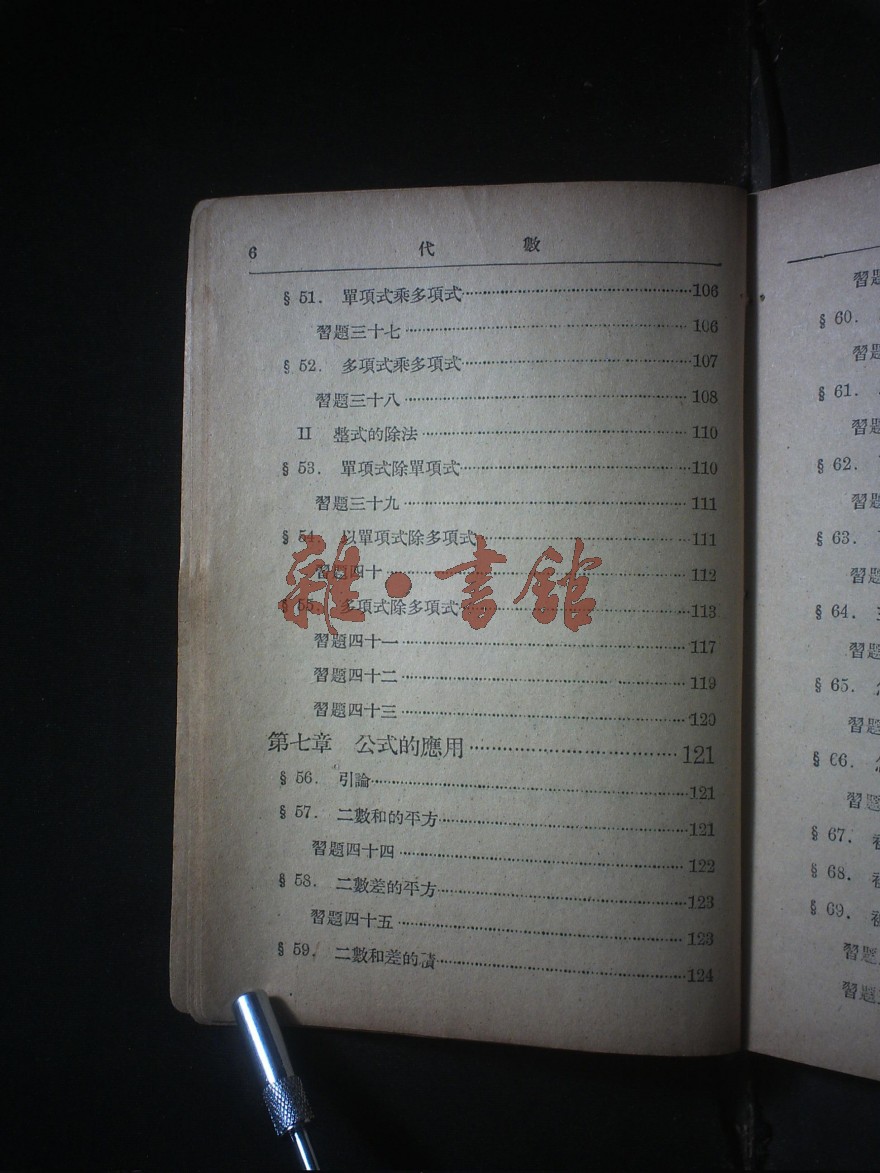 6 代 數
§ 51. 單項式乘多項式 106
習題三十七 106
§ 52. 多項式乘多項式 107
習題三十八 108
II 整式的除法 110
§ 53. 單項式除單項式 110
習題三十九 111
§ 54. 以單項式除多項式 111
習題四十 112
§ 55. 多項式除多項式 113
習題四十一 117
習題四十二 119
習題四十三 120
第七章 公式的應用 121
§ 56. 引論 121
§ 57. 二數和的平方 121
習題四十四 122
§ 58. 二數差的平方 123
習題四十五 123
§ 59. 二數和差的積 124
雜·書館
習題
§ 60.
習題
§ 61.
習題
§ 62.
習題
§ 63.
習題
§ 64.
習題
§ 65.
習題
§ 66.
習題
§ 67.
§ 68.
§ 69.
習題
習題